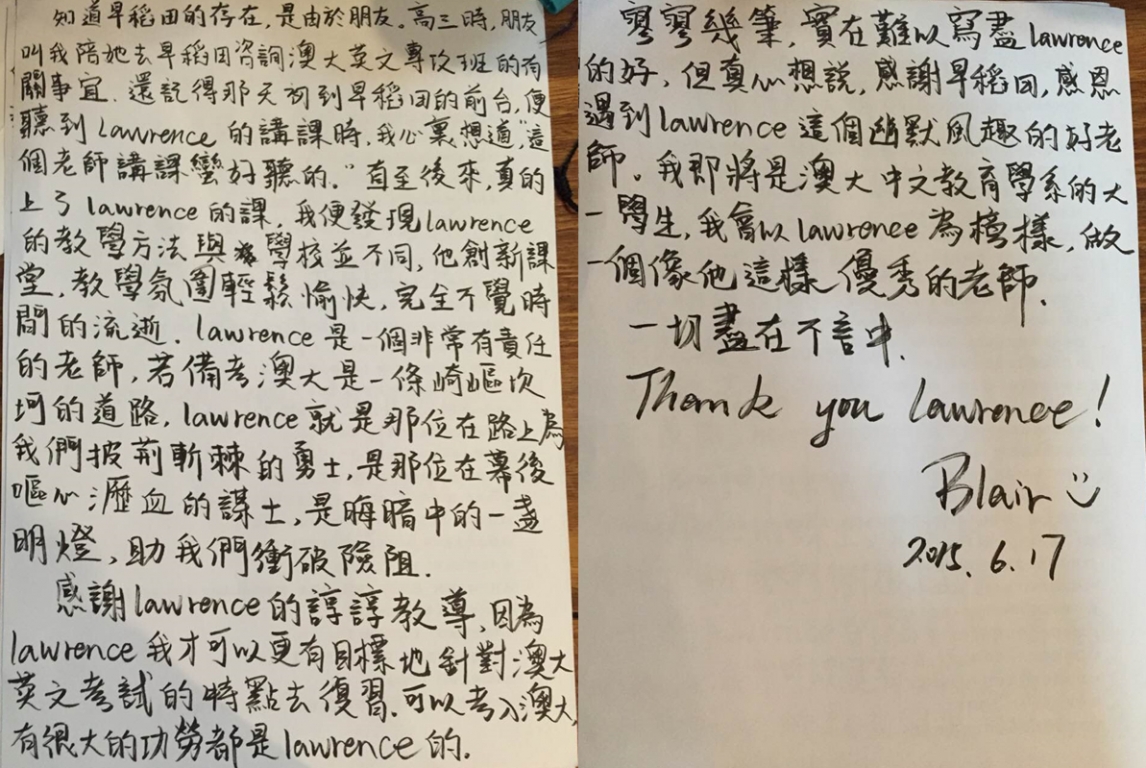 知道早稻田的存在，是由於朋友。高三時，朋友
叫我陪她去早稻田咨詢澳大英文專攻班的有
關事宜．還記得那天初到早稻田的前台，便
聽到lawrence的講課時，我心裏想道“這
個老師講課蠻好聽的．”直至後來，真的
上了lawrence的課，我便發現lawrence
的教學方法與學校並不同，他創新課
堂，教學氛圍輕鬆愉快，完全不覺時
間的流逝．lawrence是一個非常有責任
的老師，若備考澳大是一條崎嶇坎
坷的道路，lawrence就是那位在路上為
我們披荊斬棘的勇士，是那位在幕後
嘔心瀝血的謀士，是晦暗中的一盞
明燈，助我們衝破險阻．
感謝lawrence的諄諄教導，因為
lawrence我才可以更有目標地針對澳大
英文考試的特點去復習．可以考入澳大，
有很大的功勞都是lawrence的．
寥寥幾筆，實在難以寫盡lawrence
的好，但真心想説，感謝早稻田，感恩
遇到lawrence這個幽默風趣的好老
師．我即將是澳大中文教育學系的大
一學生，我會以lawrence為榜樣，做
一個像他這樣優秀的老師．
一切盡在不言中．
Thank you lawrence!
Blair
2015.6.17